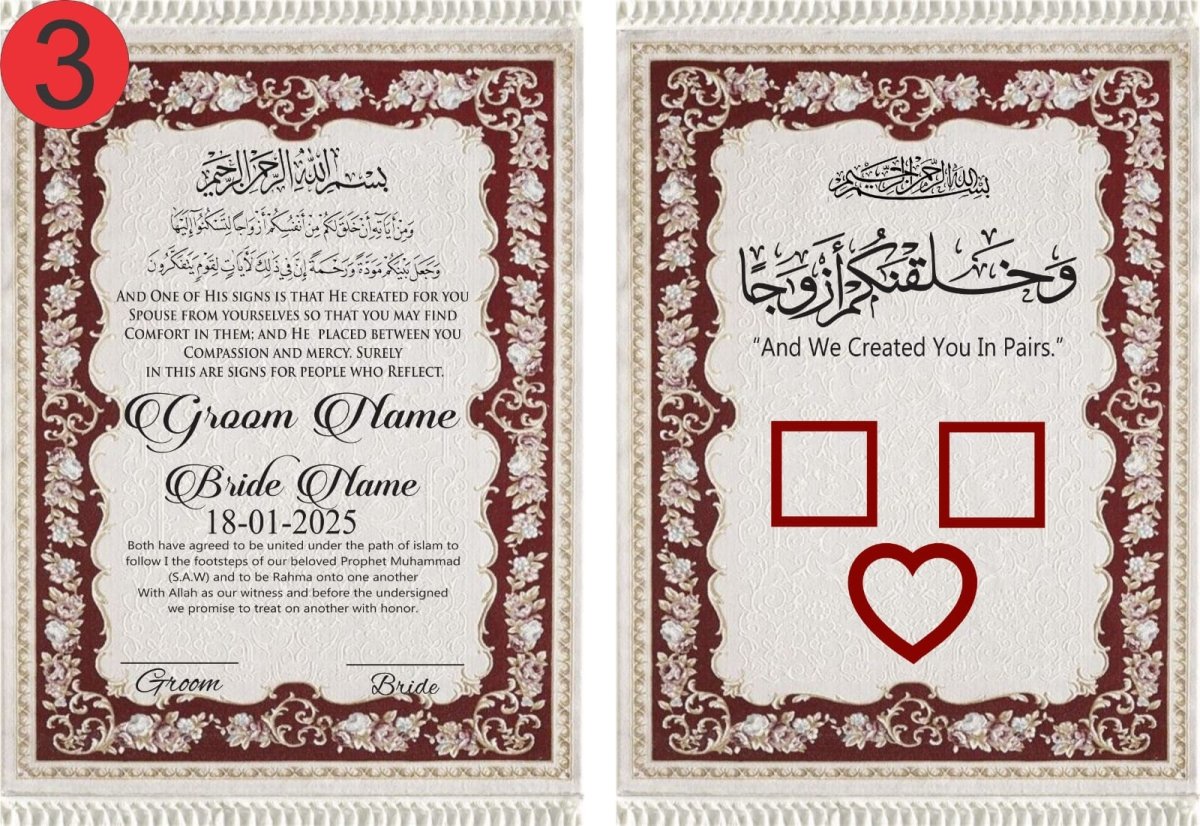 3
بسم الله الرحمن الرحيم
وَمِنْ أَيَاتِهِ أَنْ خَلَقَ لَكُمْ مِنْ أَنْفُسِكُمْ أَزْوَاجًا لِتَسْكُنُوا إِلَيْهَا
وَجَعَلَ بَيْنَكُمْ مَوَدَّةً وَرَحْمَةً إِنَّ فِي ذَلِكَ لَأَيَاتٍ لِقَوْمٍ يَتَفَكَّرُونَ
AND ONE OF HIS SIGNS IS THAT HE CREATED FOR YOU
SPOUSE FROM YOURSELVES SO THAT YOU MAY FIND
COMFORT IN THEM; AND HE PLACED BETWEEN YOU
COMPASSION AND MERCY. SURELY
IN THIS ARE SIGNS FOR PEOPLE WHO REFLECT.
Groom Name
Bride Name
18-01-2025
Both have agreed to be united under the path of islam to
follow I the footsteps of our beloved Prophet Muhammad
(S.A.W) and to be Rahma onto one another
With Allah as our witness and before the undersigned
we promise to treat on another with honor.
Groom
Bride
بسم الله الرحمن الرحيم
وَخَلَقْنَكُمْ أَزْوَجًا
"And We Created You In Pairs."